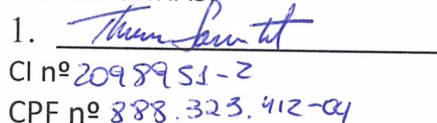 1.
CI nº 2098951-2
CPF nº 888.323.412-04